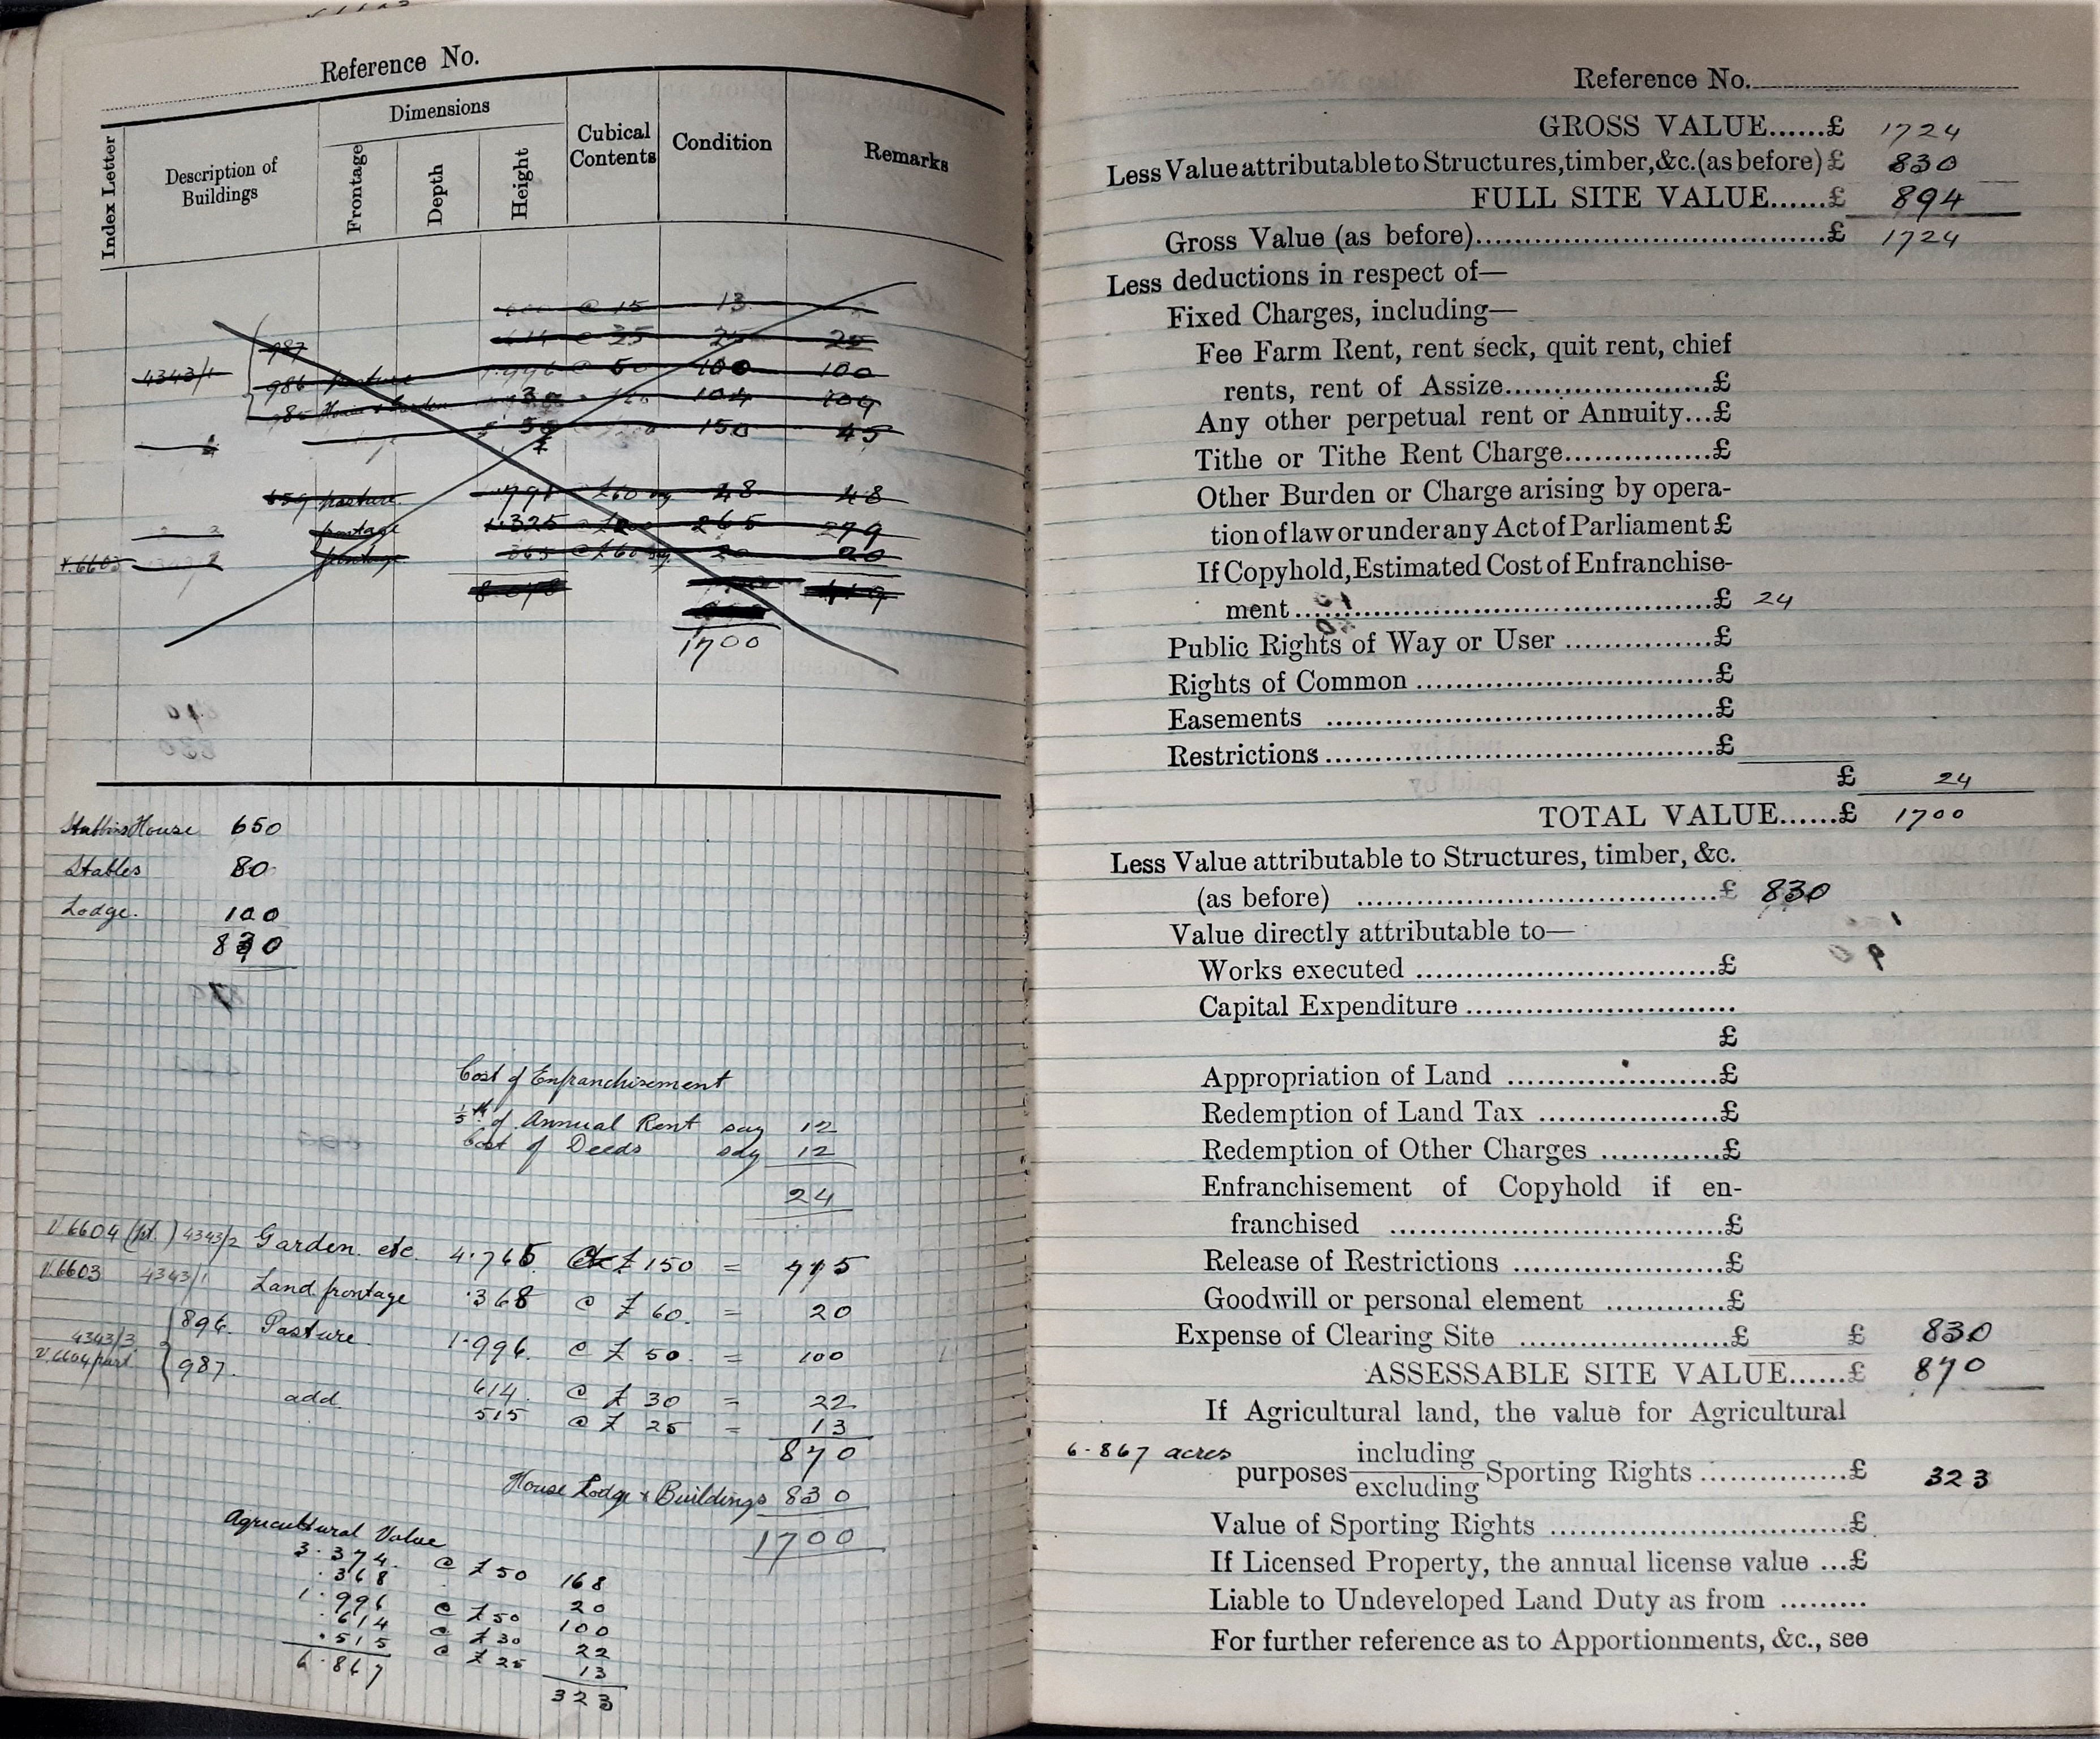 Reference No.
Index Letter
Description of Buildings
Dimensions
Frontage
Depth
Height
Cubical Contents
Condition
Remarks
@ 15 13
614 @ 35 25 25
987
4343/1
986 pasture 1.996 @ 50 100 100
985 House & Garden 104 104
150 45
659 pasture .798 @ £60 48 48
frontage 1.325 265 279
V.6603 frontage 365 @ £60 20 20
1700
Stubbins House 650
Stables 80
Lodge. 100
830
Cost of Enfranchisement
1/5th of Annual Rent say 12
Cost of Deeds say 12
24
V.6604 (pt.) 4343/2 Garden. etc. 4.765 @ £150 = 715
V.6603 4343/1 Land frontage .368 @ £ 60. = 20
4343/3 V.6604 part 896. Pasture. 1.996. @ £ 50. = 100
987. 614. @ £ 30 = 22
add. 515 @ £ 25 = 13
870
House Lodge & Buildings 830
1700
Agricultural Value
3.374. @ £50 168
.368 20
1.996 @ £50 100
.614 @ £30 22
.515 @ £25 13
6.867 323
Reference No.
GROSS VALUE......£ 1724
Less Value attributable to Structures, timber, &c. (as before) £ 830
FULL SITE VALUE......£ 894
Gross Value (as before)......£ 1724
Less deductions in respect of—
Fixed Charges, including—
Fee Farm Rent, rent seck, quit rent, chief
rents, rent of Assize......£
Any other perpetual rent or Annuity...£
Tithe or Tithe Rent Charge......£
Other Burden or Charge arising by opera-
tion of law or under any Act of Parliament £
If Copyhold, Estimated Cost of Enfranchise-
ment......£ 24
Public Rights of Way or User ......£
Rights of Common ......£
Easements ......£
Restrictions ......£
£ 24
TOTAL VALUE......£ 1700
Less Value attributable to Structures, timber, &c.
(as before) ......£ 830
Value directly attributable to—
Works executed ......£
Capital Expenditure ......
£
Appropriation of Land ......£
Redemption of Land Tax ......£
Redemption of Other Charges ......£
Enfranchisement of Copyhold if en-
franchised ......£
Release of Restrictions ......£
Goodwill or personal element ......£
Expense of Clearing Site ......£ £ 830
ASSESSABLE SITE VALUE......£ 870
If Agricultural land, the value for Agricultural
6.867 acres purposes including/excluding Sporting Rights ......£ 323
Value of Sporting Rights ......£
If Licensed Property, the annual license value ...£
Liable to Undeveloped Land Duty as from .........
For further reference as to Apportionments, &c., see